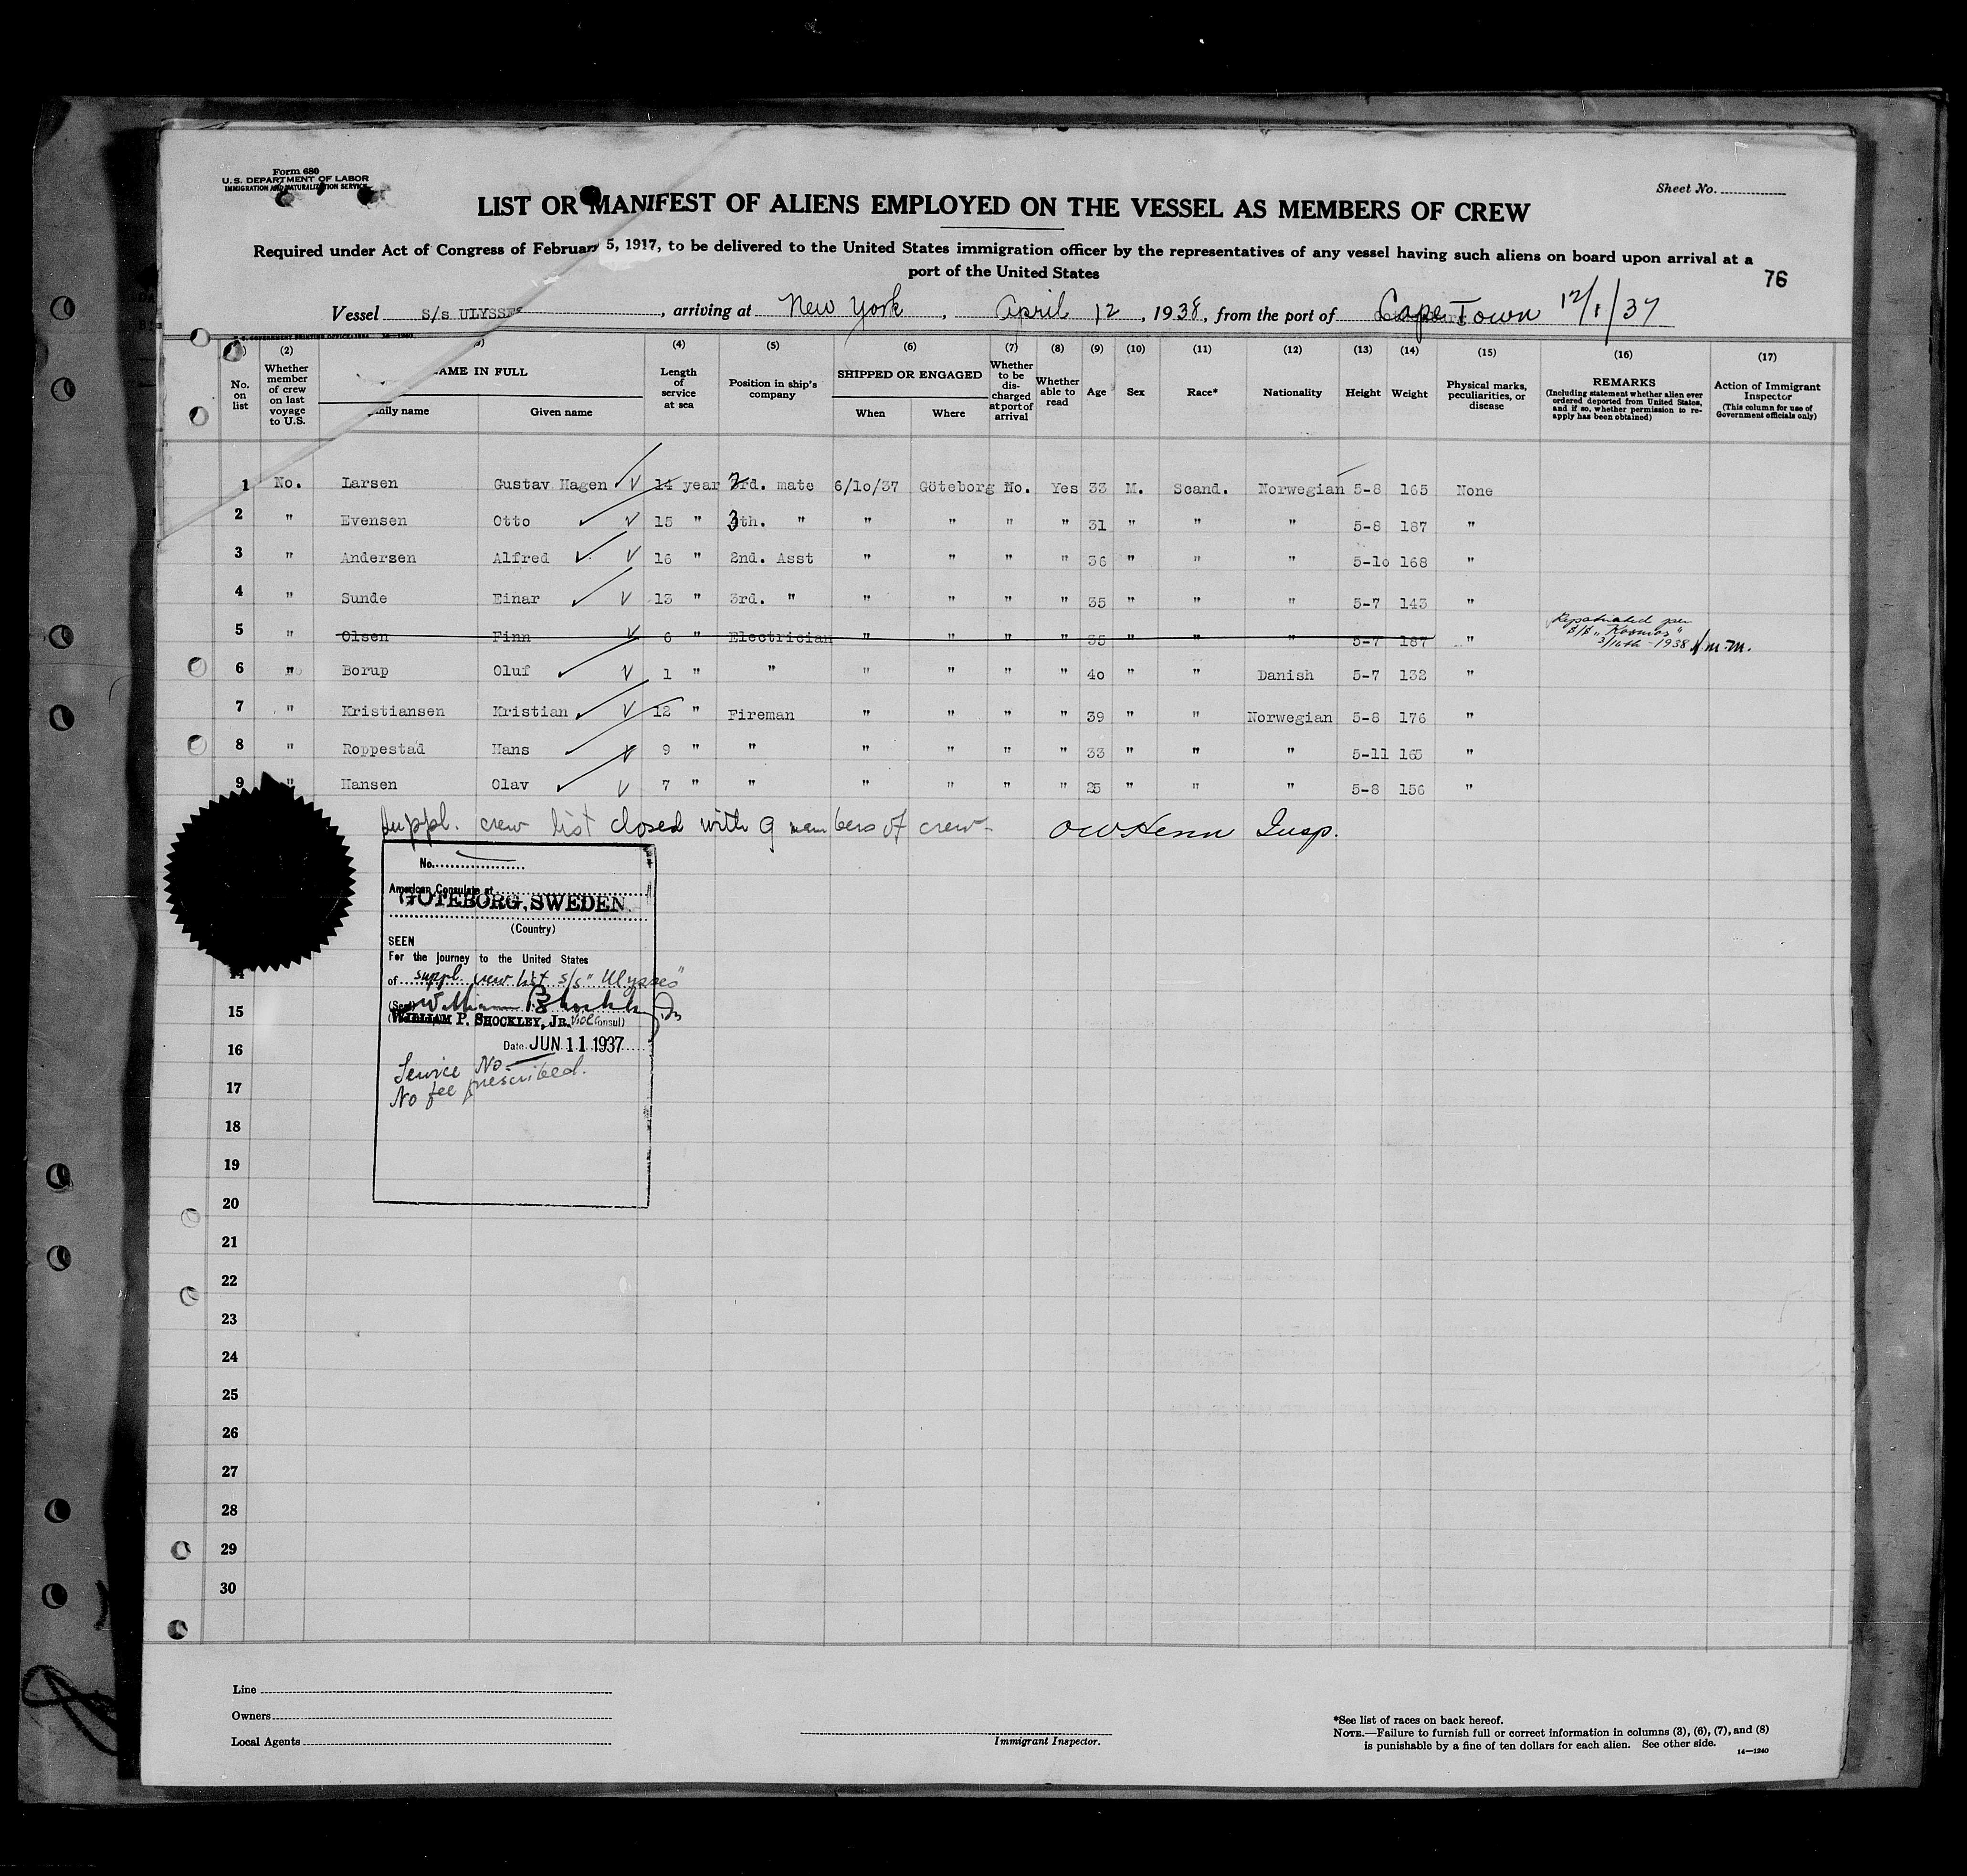 Form 680
U. S. DEPARTMENT OF LABOR
IMMIGRATION AND NATURALIZATION SERVICE
Sheet No.
LIST OR MANIFEST OF ALIENS EMPLOYED ON THE VESSEL AS MEMBERS OF CREW
Required under Act of Congress of February 5, 1917, to be delivered to the United States immigration officer by the representatives of any vessel having such aliens on board upon arrival at a
port of the United States
76
Vessel S/s ULYSSES, arriving at New York, April 12, 1938, from the port of Cape Town 12/1/37
(2) (4) (5) (6) (7) (8) (9) (10) (11) (12) (13) (14) (15) (16) (17)
No. on list
Whether member of crew on last voyage to U.S.
NAME IN FULL
Family name Given name
Length of service at sea
Position in ship's company
SHIPPED OR ENGAGED
When Where
Whether to be discharged at port of arrival
Whether able to read
Age Sex Race* Nationality Height Weight
Physical marks, peculiarities, or disease
REMARKS
(Including statement whether alien ever ordered deported from United States, and if so, whether permission to reapply has been obtained)
Action of Immigrant Inspector
(This column for use of Government officials only)
1 No. Larsen Gustav Hagen √ 14 year 2rd. mate 6/10/37 Göteborg No. Yes 33 M. Scand. Norwegian 5-8 165 None
2 " Evensen Otto √ 15 " 3th. " " " " " 31 " " " 5-8 187 "
3 " Andersen Alfred √ 16 " 2nd. Asst " " " " 36 " " " 5-10 168 "
4 " Sunde Einar √ 13 " 3rd. " " " " " 35 " " " 5-7 143 "
5 " Olsen Finn √ 6 " Electrician " " " " 35 " " " 5-7 187 " Repatriated per S/S "Kosmos" 3/16th-1938 M.M.
6 " Borup Oluf √ 1 " " " " " " 40 " " Danish 5-7 132 "
7 " Kristiansen Kristian √ 12 " Fireman " " " " 39 " " Norwegian 5-8 176 "
8 " Roppestad Hans √ 9 " " " " " " 33 " " " 5-11 165 "
9 " Hansen Olav √ 7 " " " " " " 25 " " " 5-8 156 "
Suppl. crew list closed with 9 members of crew. OWHenn Insp.
No.
American Consulate at
GOTEBORG, SWEDEN.
(Country)
SEEN
For the journey to the United States
of suppl. crew list S/S "Ulysses"
(Seal) William P Shockley Jr
WILLIAM P. SHOCKLEY, JR. Vice Consul)
Date JUN 11 1937
Service No. —
No fee prescribed.
14
15
16
17
18
19
20
21
22
23
24
25
26
27
28
29
30
Line
Owners
Local Agents
Immigrant Inspector.
*See list of races on back hereof.
NOTE.—Failure to furnish full or correct information in columns (3), (6), (7), and (8)
is punishable by a fine of ten dollars for each alien. See other side.
14—1240